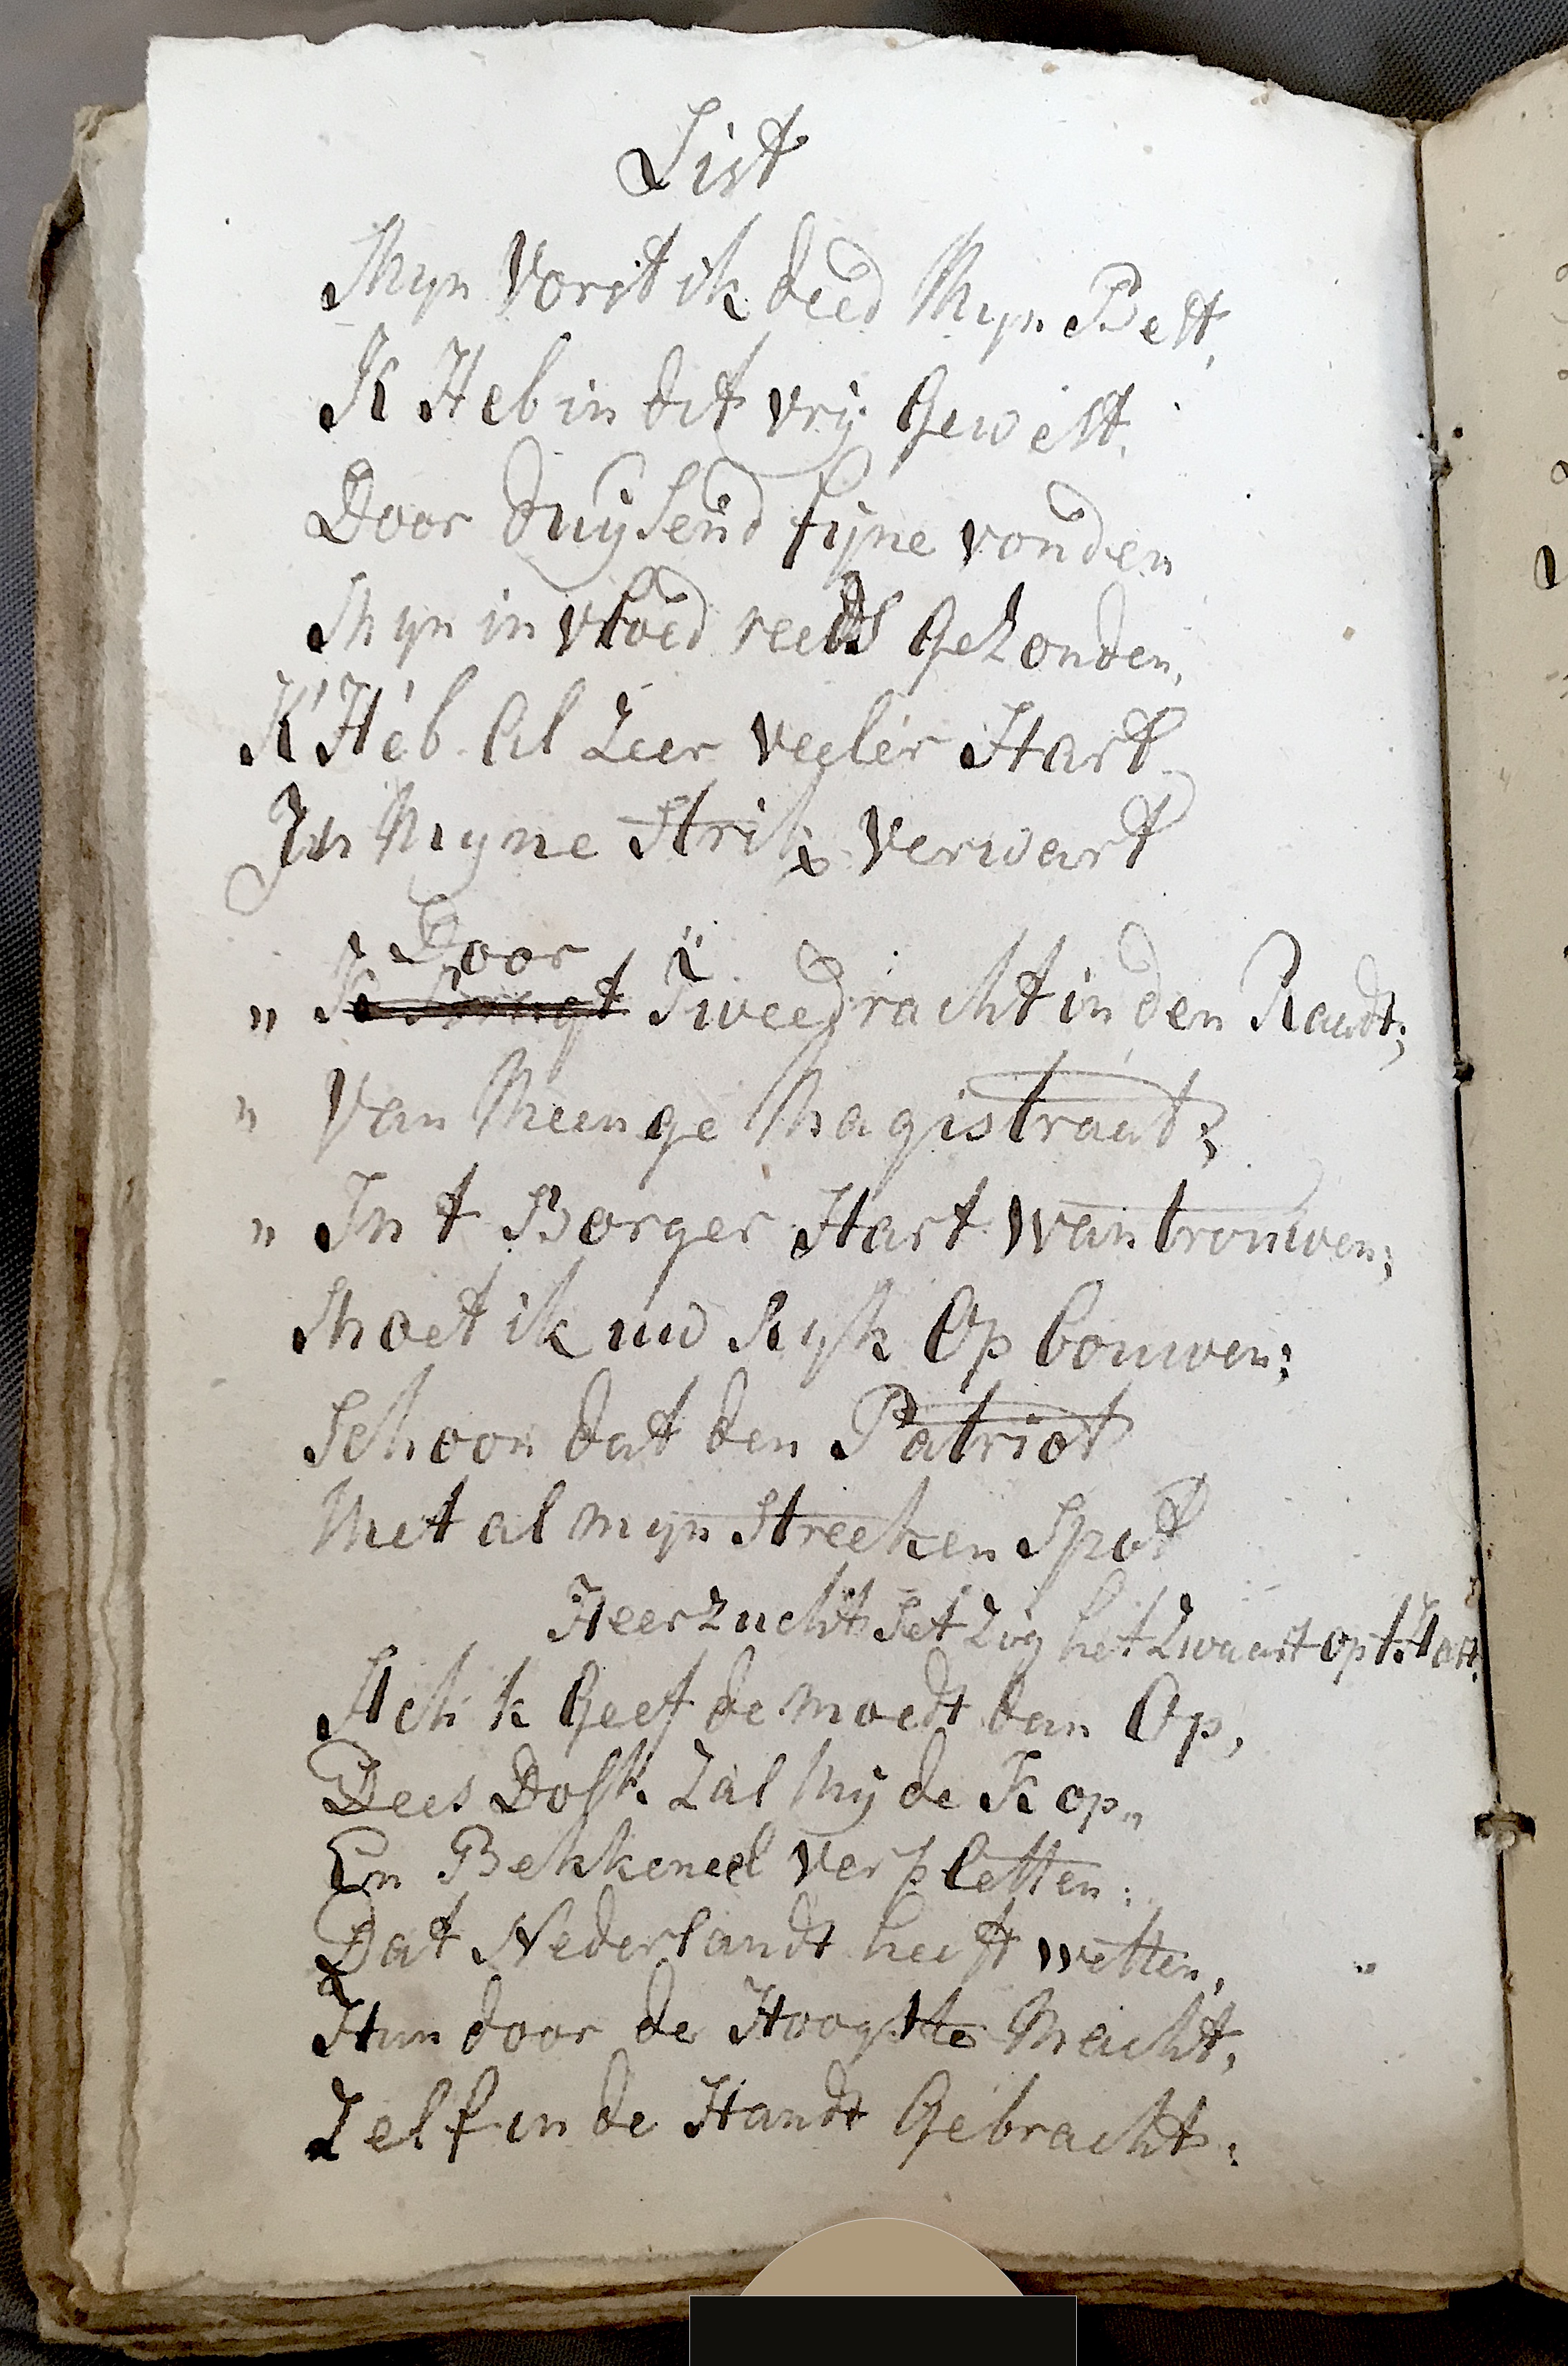 List
Myn Vorst ik deed Myn Best,
K Heb in dit vrij Gewest,
Door duijsend fijne vonden
Myn invloed reeds Gezonden,
K' Heb Al Zeer veeler Hart
In Myne Strik verwart
„ Door
„ K Brengt Tweedracht in den Raadt;
„ Van Meenge Magistraat;
„ In t Borger Hart wantrouwen;
Moet ik uw Ryk Op bouwen;
Schoon dat den Patriot
Met al myn Streeken Spot
Heerzucht Set Zig het Zwaart op t Hart
Ach k Geef de moedt dan Op,
Dees Dolk Zal My de Kop„
En Bekkeneel verpletten:
Dat Nederlandt heeft wetten,
Hun door de Hoogste Macht,
Zelf in de Handt Gebracht: